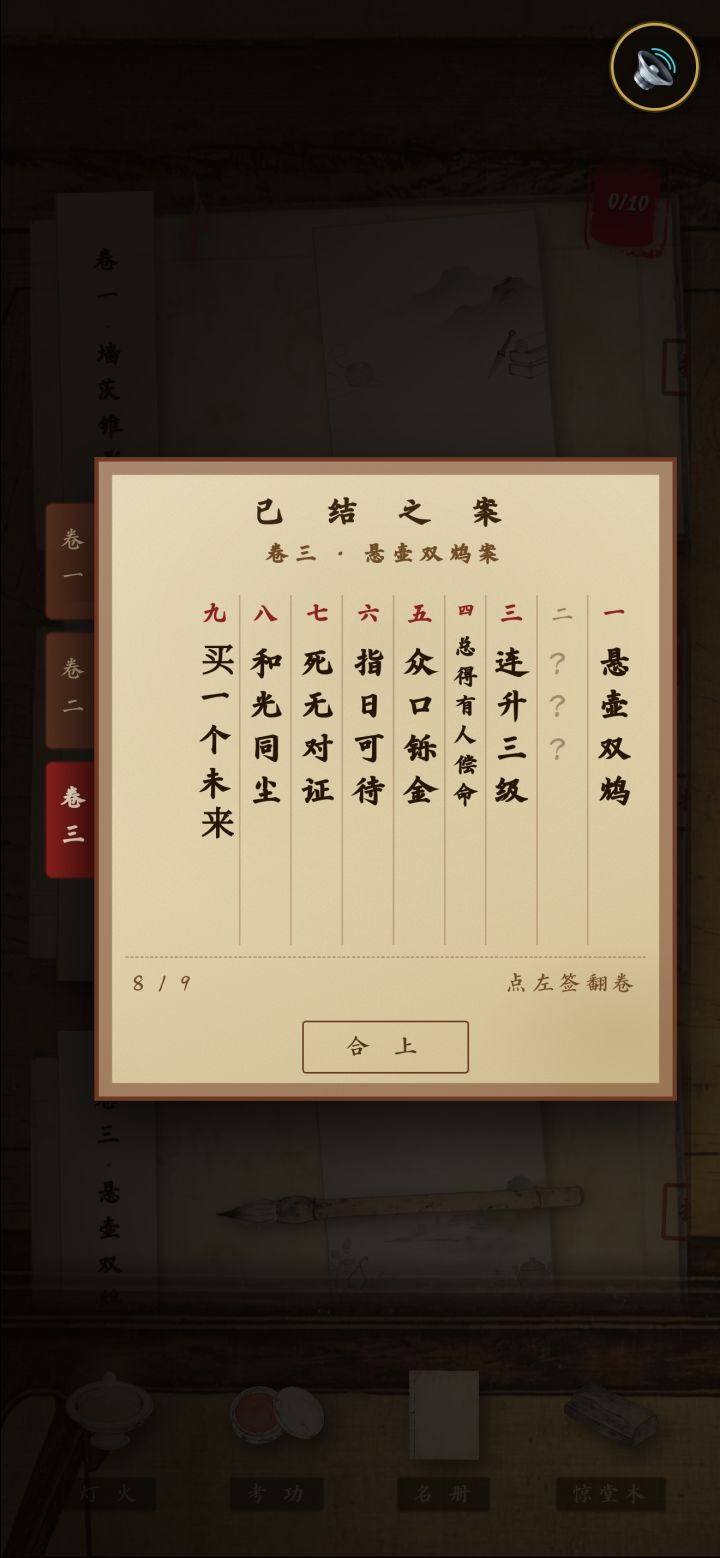 0/10
卷一·墙茨雉
卷一
卷二
卷三
已结之案
卷三·悬壶双鸩案
一 悬壶双鸩
二 ???
三 连升三级
四 总得有人偿命
五 众口铄金
六 指日可待
七 死无对证
八 和光同尘
九 买一个未来
8 / 9
点左签翻卷
合上
卷三·悬壶双鸩
灯火
考功
名册
惊堂木